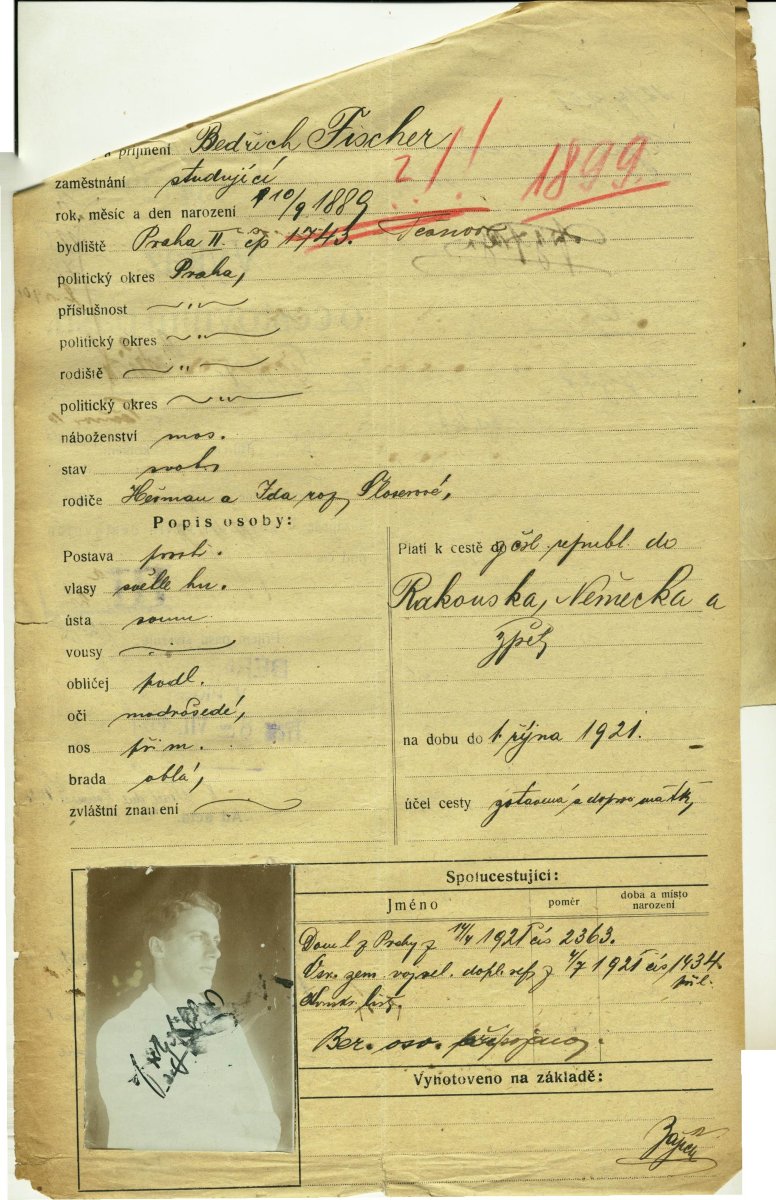 a příjmení Bedřich Fischer
zaměstnání studující
?!! 1899.
rok, měsíc a den narození 10/9 1889
bydliště Praha II čp 1743.
politický okres Praha,
příslušnost — " —
politický okres — " —
rodiště — " —
politický okres — " —
náboženství mos.
stav svob.
rodiče Heřman a Ida roz.
Popis osoby:
Postava prostř.
vlasy světle hn.
ústa soum.
vousy
obličej podl.
oči modrošedé,
nos přim.
brada oblá,
zvláštní znamení
Platí k cestě z čsl republ. do
Rakouska, Německa a
zpět
na dobu do 1. října 1921.
účel cesty zotavená a doprov. matky
Spolucestující:
Jméno poměr doba a místo narození
Dom. l. z Prahy z 14/4 1921 čís 2363.
vojsk. dopl. z 4/7 1921 čís 1434.
Ber. osv. připojeno.
Vyhotoveno na základě: